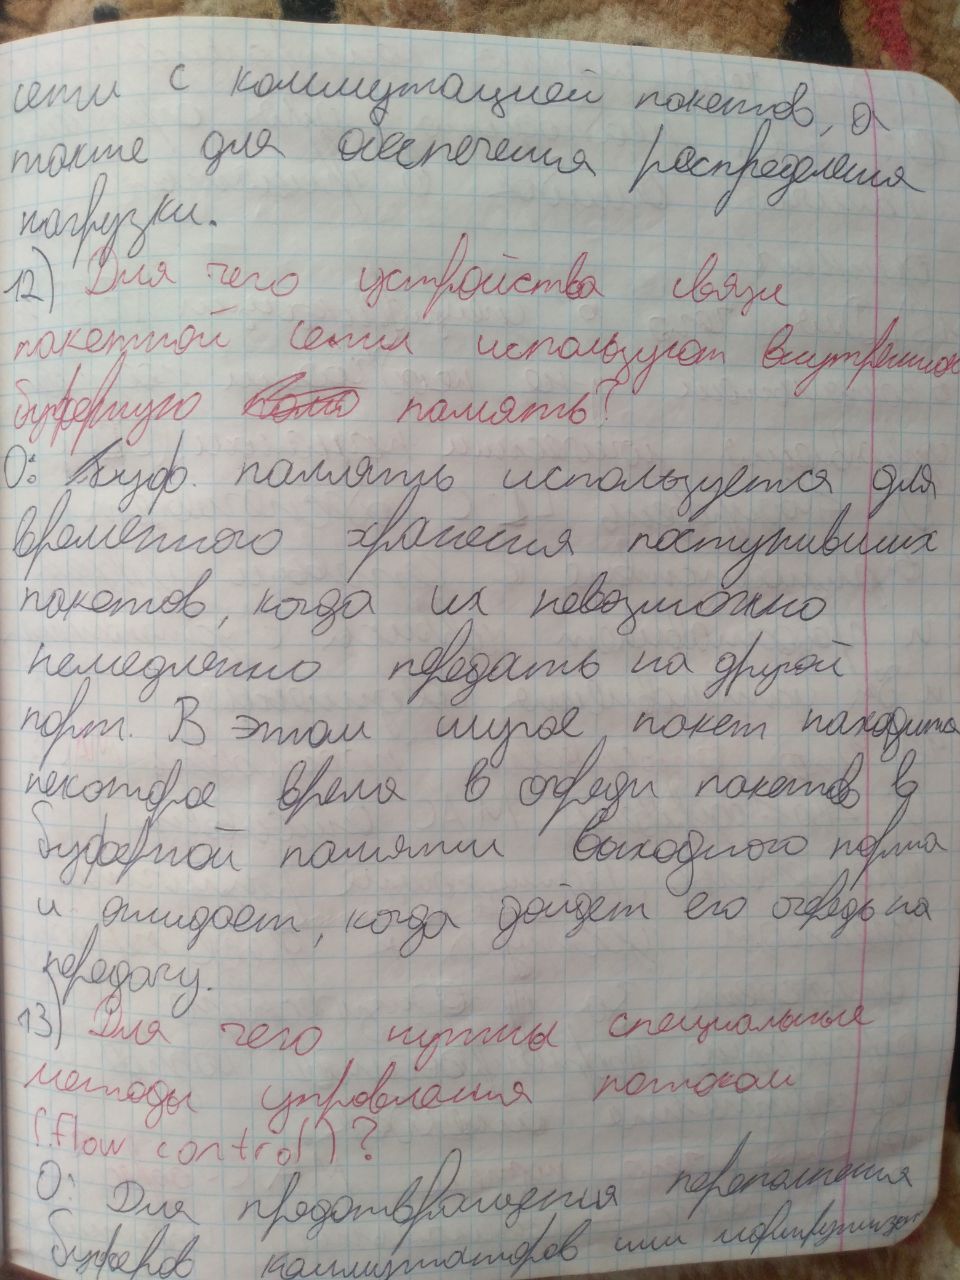 сети с коммутацией пакетов, а
также для обеспечения распределения
нагрузки.
12) Для чего устройства связи
пакетной сети используют внутреннюю
буферную память?
О: Буф. память используется для
временного хранения поступивших
пакетов, когда их невозможно
немедленно передать на другой
порт. В этом случае пакет находится
некоторое время в очереди пакетов в
буферной памяти выходного порта
и ожидает, когда дойдет его очередь на
передачу.
13) Для чего нужны специальные
методы управления потоком
(flow control)?
О: Для предотвращения переполнения
буферов коммутаторов или